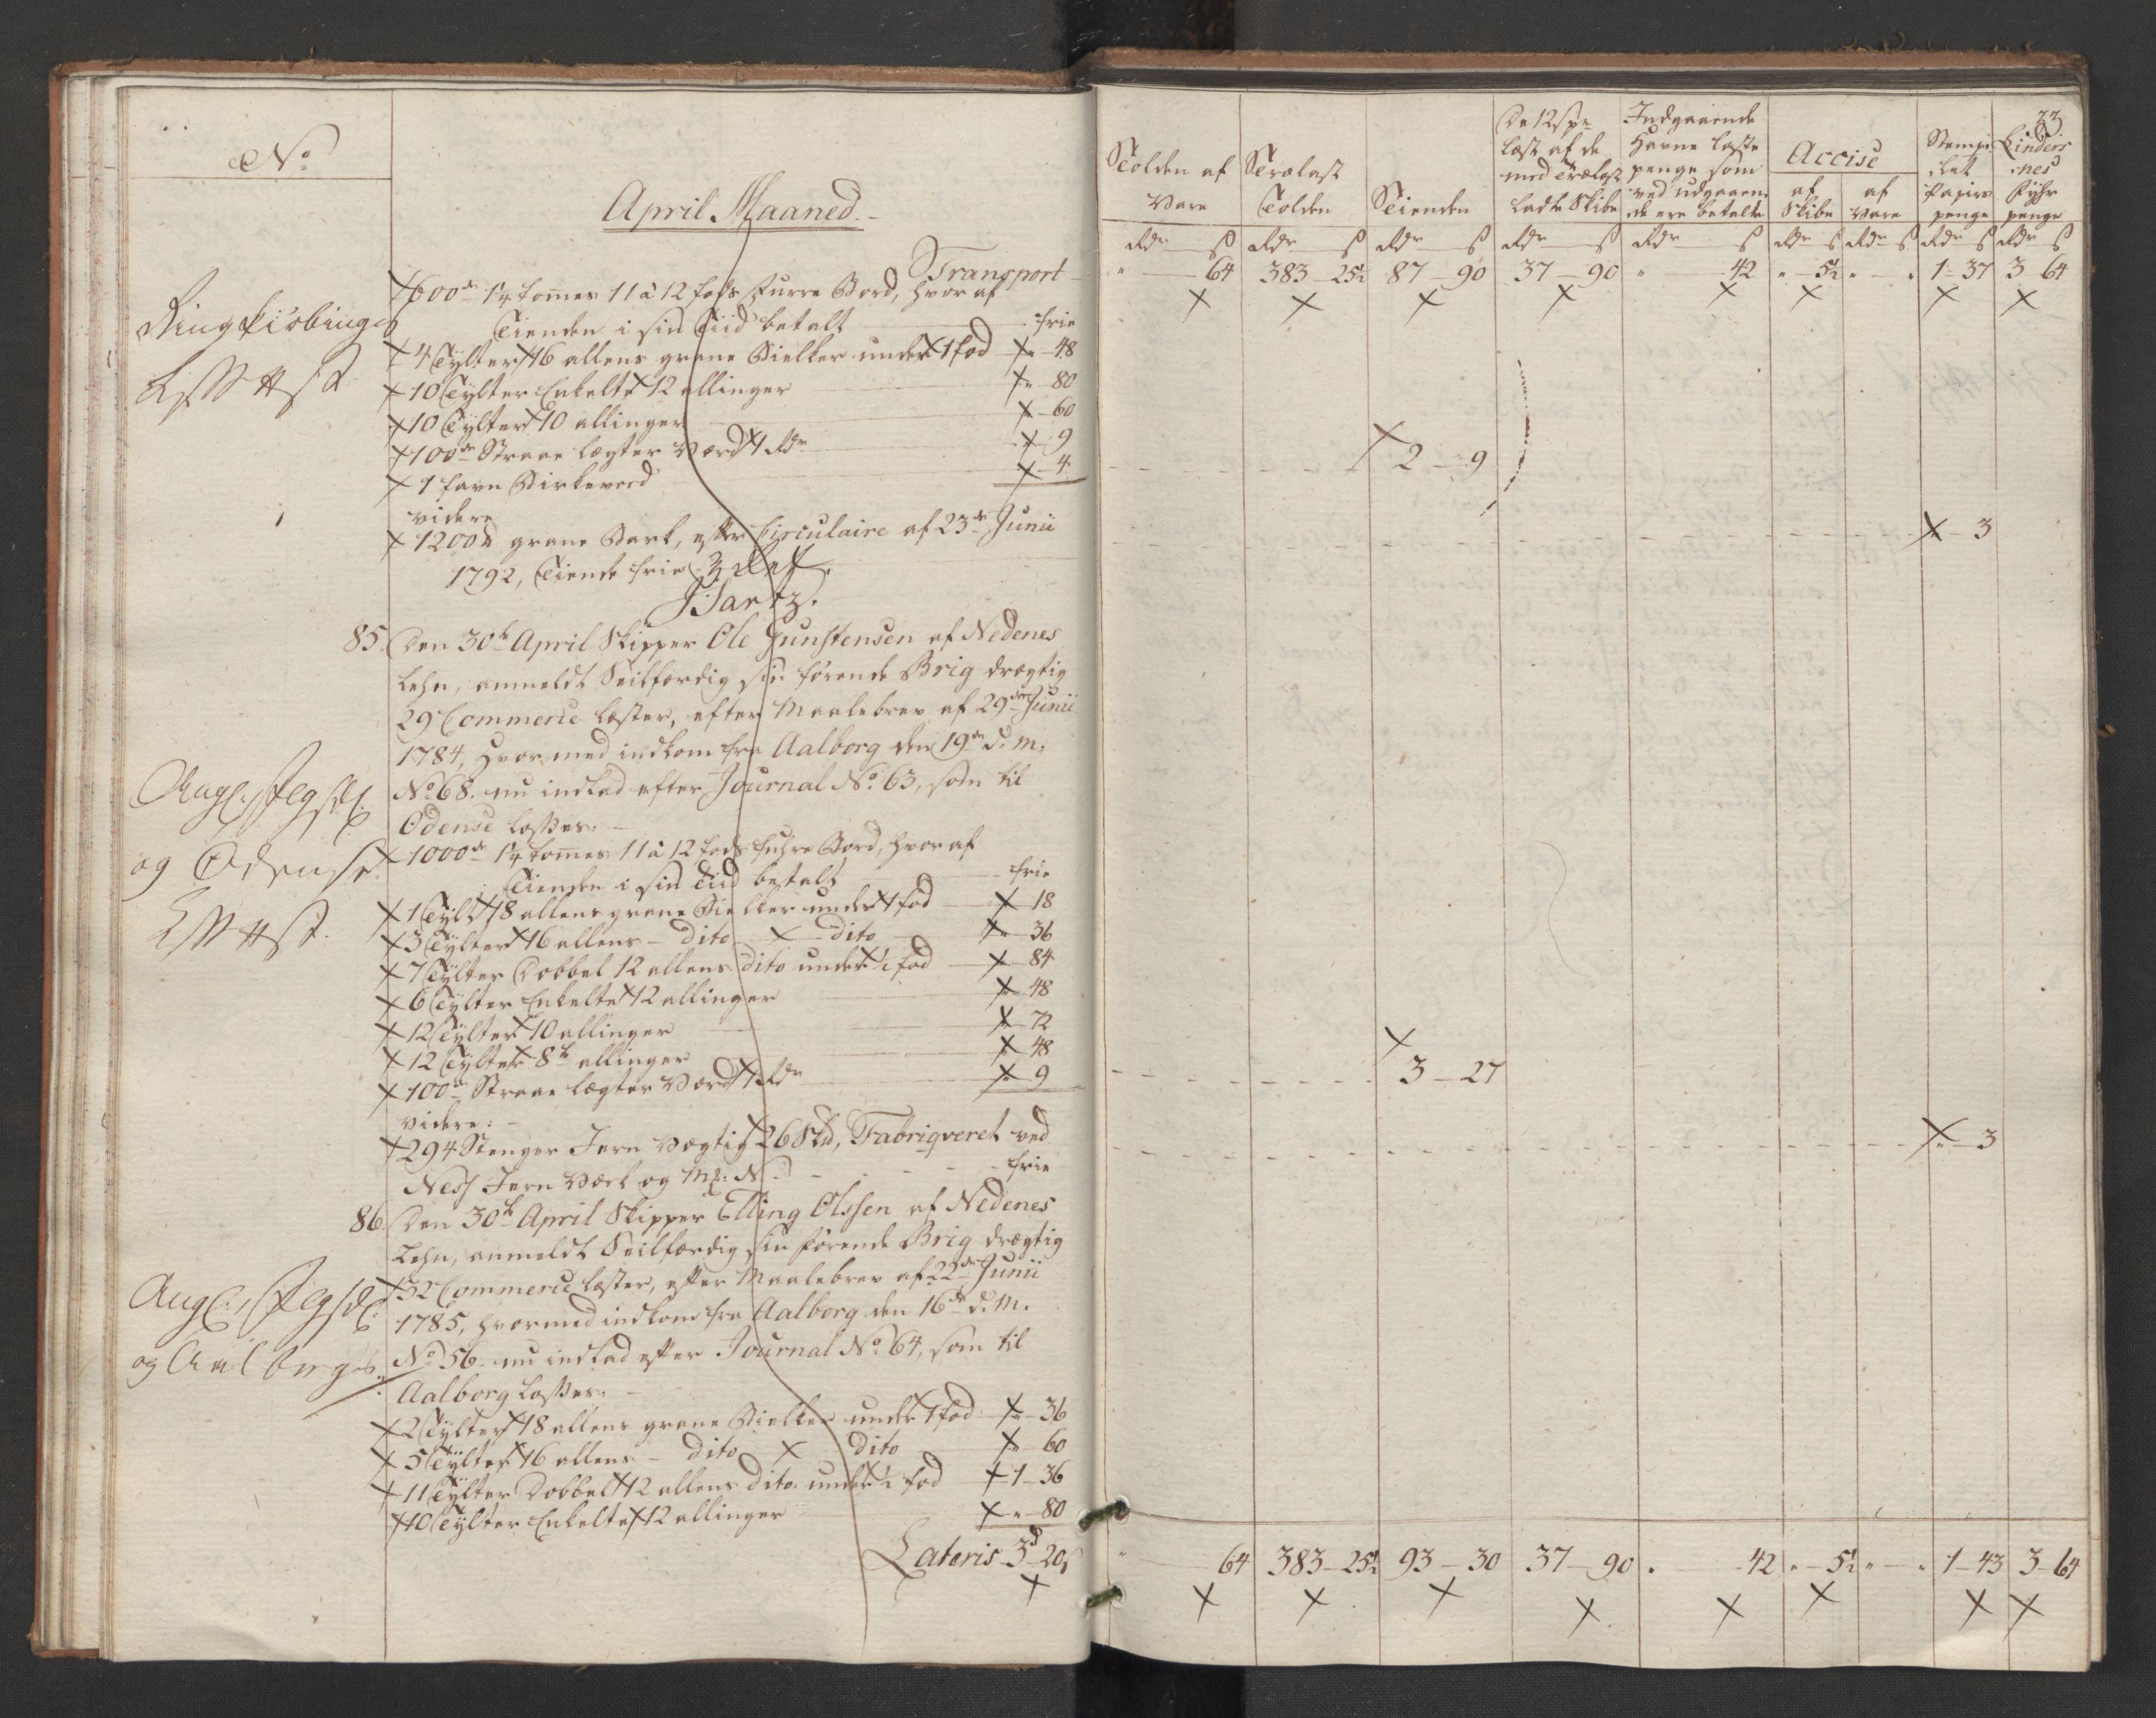 No
April Maaned.
Transport
600de 1¼ tomes 11 à 12 fods furre Bord, hvor af
Tienden i sin Tiid betalt frie
4 Tylter 16 allens grane Bielker under 1 fod „ 48
10 Tylter Enkelte 12 allinger „ 80
10 Tylter 10 allinger „ 60
100de Straae lægter Værd 1 Rdr „ 9
1 favn Birkeved „ 4
videre
1200 grane Bark, efter Circulaire af 23de Junii
1792, Tiende frie
Ringkiøbings
85. Den 30te April Skipper Ole Gunstensen af Nedenes
Lehn, anmeldt Seilfærdig sin førende Brig drægtig
29 Commerce læster, efter Maalebrev af 29de Junii
1784, hvormed indkom fra Aalborg den 19de d: M:
No 68. nu indlad efter Journal No 63, som til
Odense losses:
1000de 1¼ tomes 11 à 12 fods fuhre Bord, hvor af
Tienden i sin Tiid betalt frie
1 Tylt 18 allens grane Bielker under 1 fod „ 18
3 Tylter 16 allens – dito – dito „ 36
7 Tylter Dobbel 12 allens dito under ½ fod „ 84
6 Tylter Enkelte 12 allinger „ 48
12 Tylter 10 allinger „ 72
12 Tylter 8te allinger „ 48
100de Straae lægter Værd 1 Rdr „ 9
videre:
294 Stenger Jern Vægtig 26 Skd, Fabriqveret ved
Ness Jern Værk og frie
og Odense
86. Den 30te April Skipper Elling Olssen af Nedenes
Lehn, anmeldt Seilfærdig sin førende Brig drægtig
32 Commerce læster, efter Maalebrev af 22de Junii
1785, hvormed indkom fra Aalborg den 16de d: M:
No 56. nu indlad efter Journal No 64, som til
Aalborg losses:
2 Tylter 18 allens grane Bielker under 1 fod „ 36
5 Tylter 16 allens – dito dito „ 60
11 Tylter Dobbel 12 allens dito under ½ fod 1 – 36
10 Tylter Enkelte 12 allinger „ – 80
og Aalborgs
Lateris 3d – 20s
23
Tolden af Vare
Trælast Tolden
Tienden
De 12 s pr læst af de med Trælast ladte Skibe
Indgaaende Havne laste penge som ved udgaaende ere betalte
Accise
af Skibe
af Vare
Stempelet Papirs penge
Lindersnes Fyhr penge
Rdr ß Rdr ß Rdr ß Rdr ß Rdr ß Rdr ß Rdr ß Rdr ß Rdr ß
„ 64 383 – 25½ 87 – 90 37 – 90 „ 42 „ – 5½ „ – „ 1 – 37 3 64
2 – 9
„ 3
3 – 27
„ – 3
„ 64 383 – 25½ 93 – 30 37 – 90 „ 42 „ – 5½ „ – „ 1 – 43 3 – 64